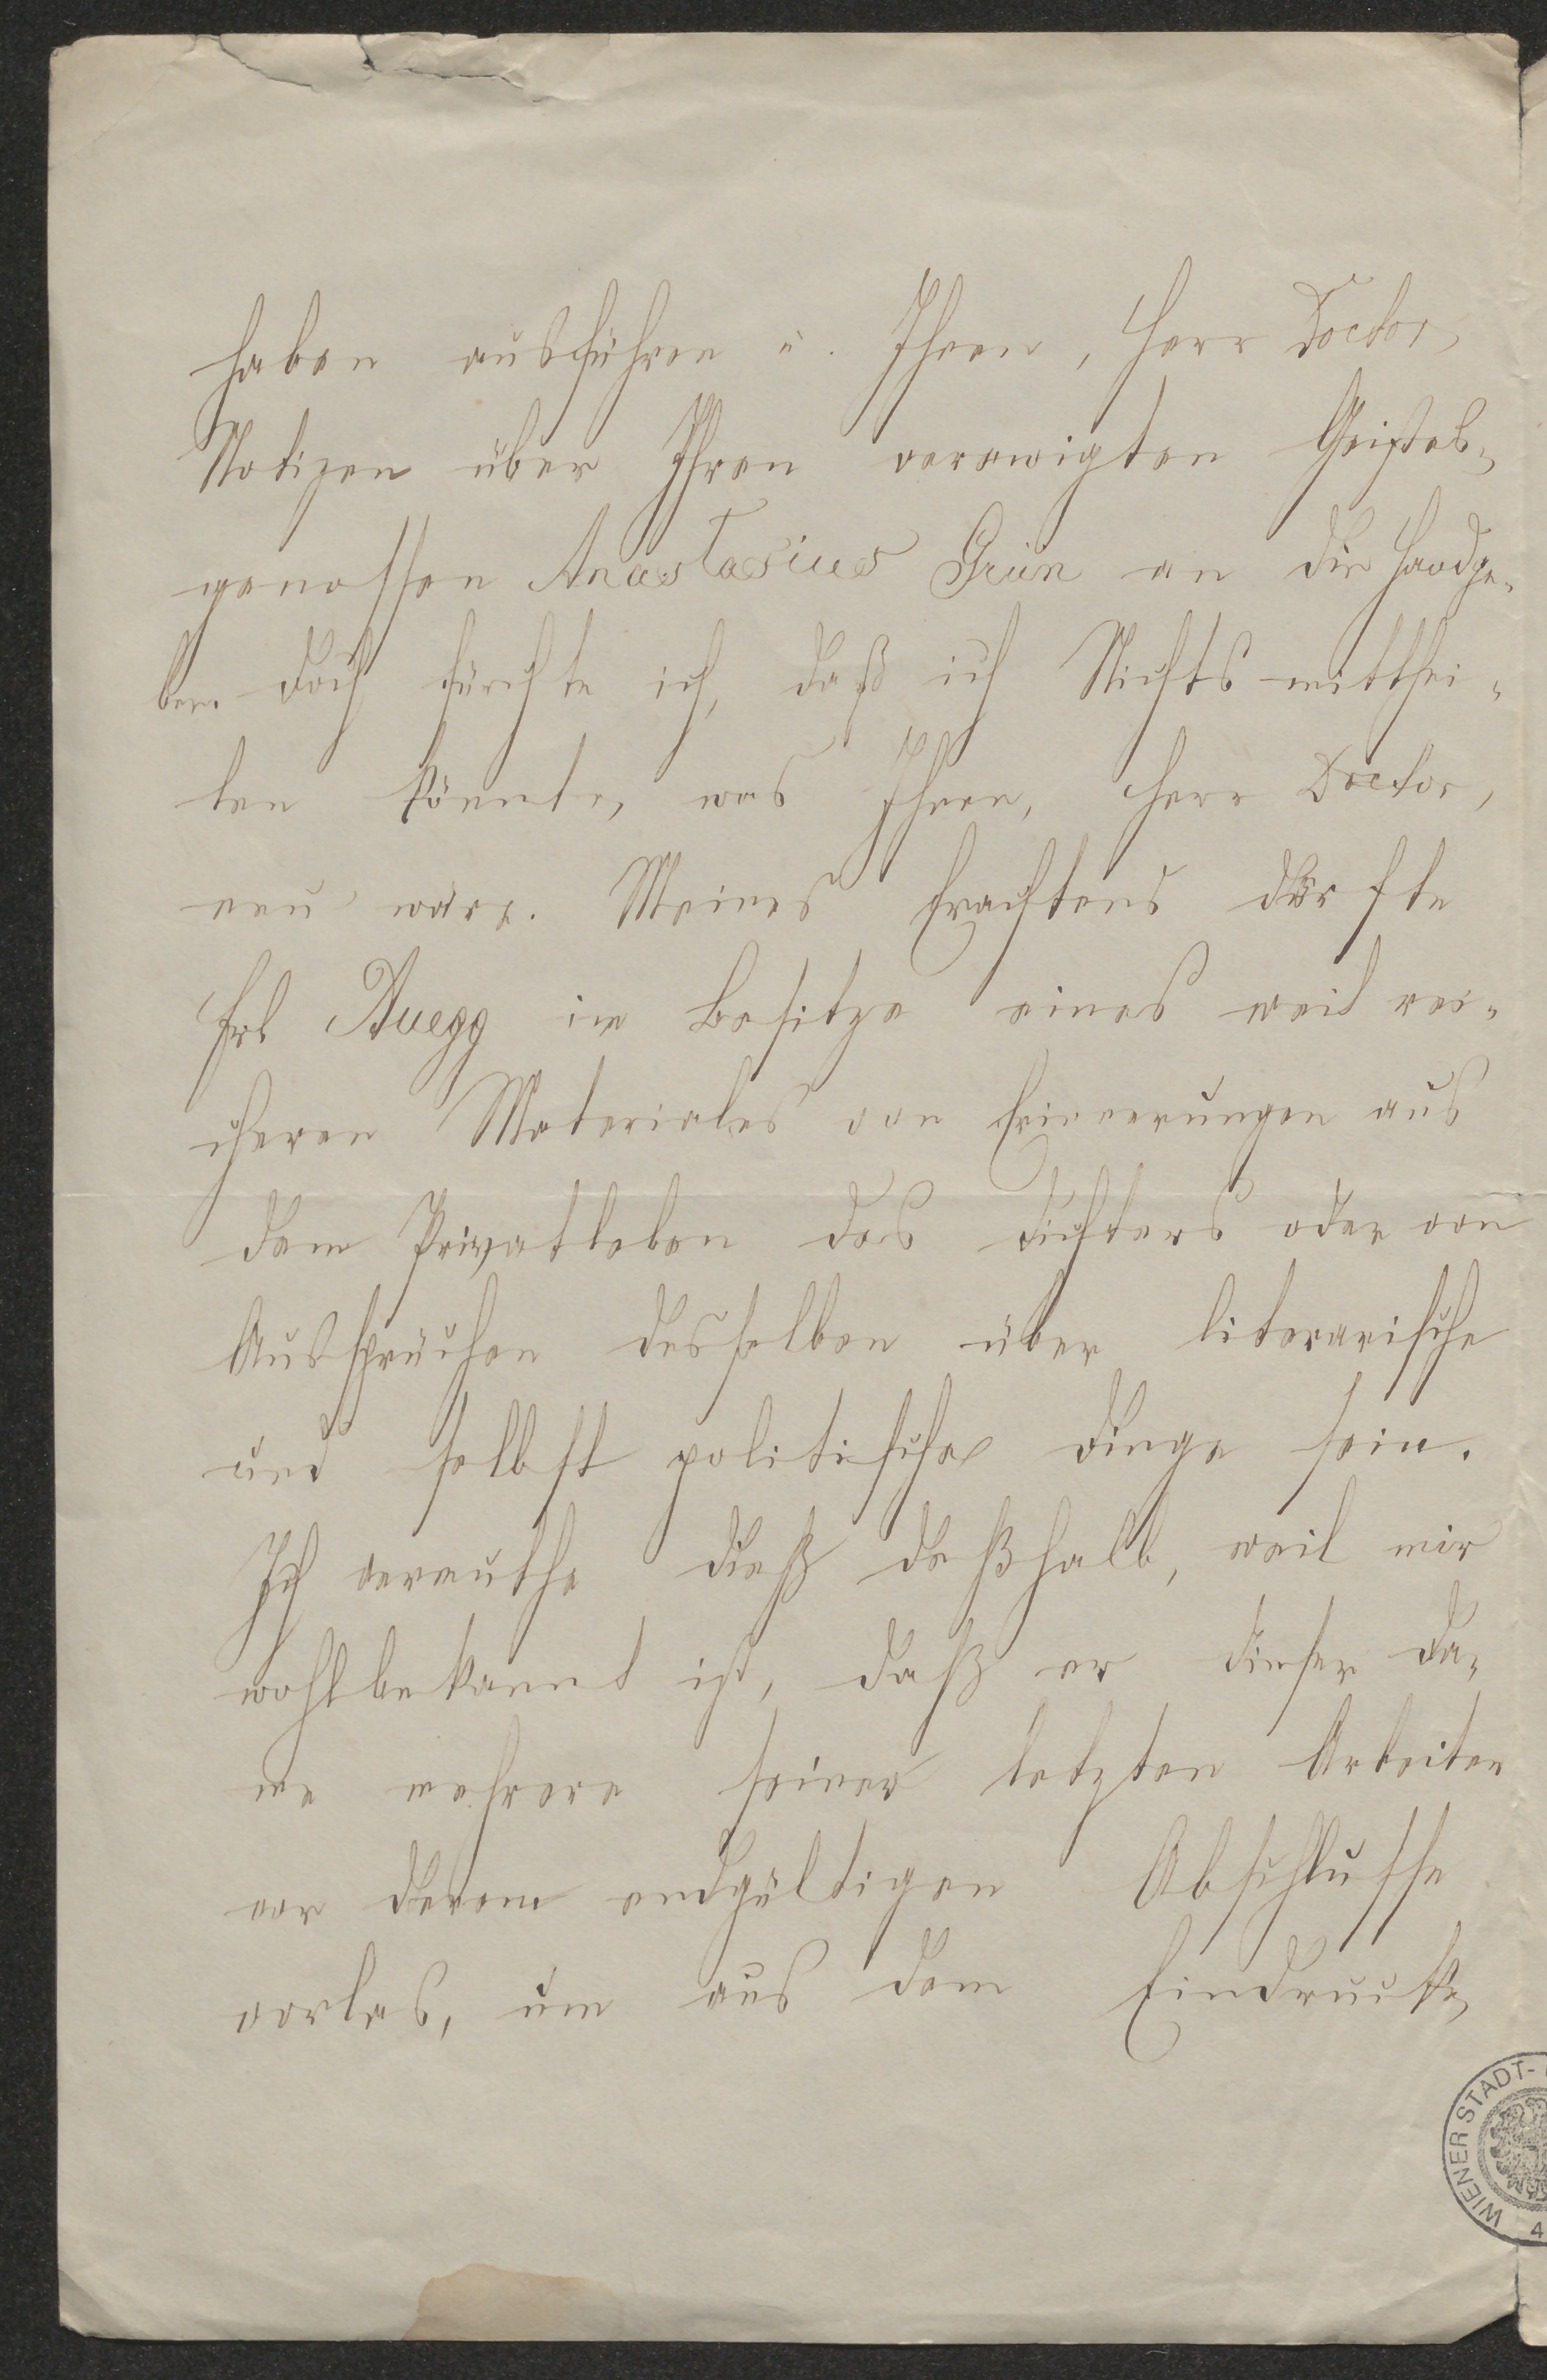 haben ausführen u. Ihnen, Herr Doctor,
Notizen über Ihren verewigten Geistes-
genossen Anastasius Grün an die Hand ge-
ben. Doch fürchte ich, daß ich Nichts mitthei-
len könnte, was Ihnen, Herr Doctor,
neu wäre. Meines Erachtens dürfte
Frl Auegg im Besitze eines weit rei-
cheren Materiales von Erinnerungen aus
dem Privatleben des Dichters oder von
Aussprüchen desselben über literarische
und selbst politische Dinge sein.
Ich vermuthe dieß deßhalb, weil mir
wohlbekannt ist, daß er dieser Da-
me mehrere seiner letzten Arbeiten
vor deren endgültigen Abschlusse
vorlas, um aus dem Eindrucke,
WIENER STADT-
4